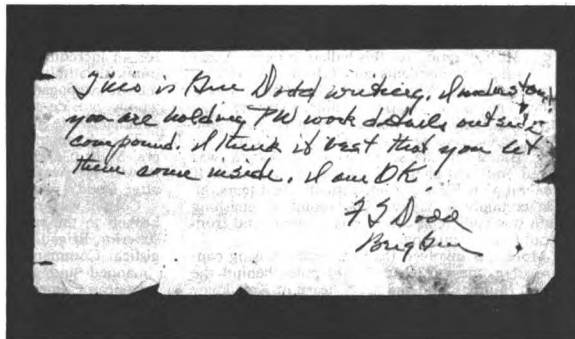 This is Gen Dodd writing. I understand
you are holding PW work details outside
compound. I think it best that you let
them come inside. I am OK.
F T Dodd
Brig Gen